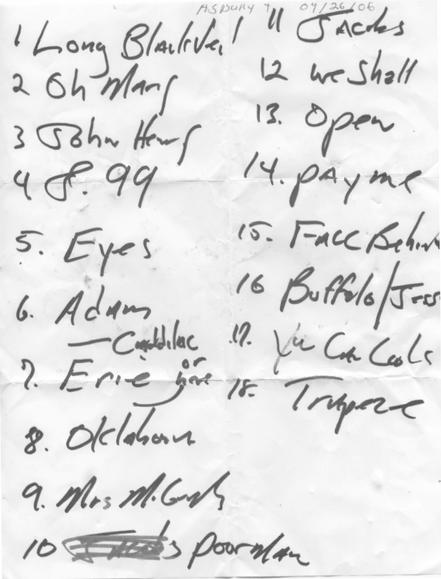 Asbury 4 04/26/06
1 Long Black Veil
2 Oh Mary
3 John Henry
4 8.99
5. Eyes
6. Adam
— Cadillac
7. Erie or
8. Oklahoma
9. Mrs McGrath
10 Jacobs poor man
11 Jacobs
12 we Shall
13. Open
14. pay me
15. Face Behind
16 Buffolo/Jess
17. You Can Look
18. Trapeze